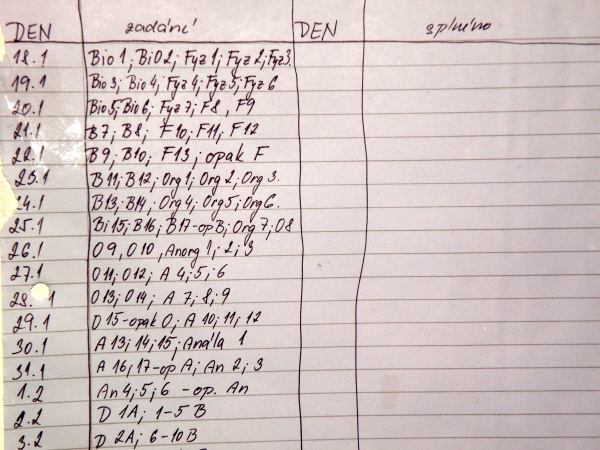 DEN zadání DEN splněno
18.1 Bio 1; BiO2; Fyz 1; Fyz 2; Fyz3.
19.1 Bio 3; Bio 4; Fyz 4; Fyz 5; Fyz 6
20.1 Bio 5; Bio 6; Fyz 7; F8, F9
21.1 B7; B8; F10; F11; F12
22.1 B9; B10; F13; opak F
23.1 B11; B12; Org 1; Org 2; Org 3.
24.1 B13; B14; Org 4; Org 5; Org 6.
25.1 Bi 15; B16; B17-opB; Org 7; O8
26.1 O9, O10, Anorg 1; 2; 3
27.1 O11; O12; A 4; 5; 6
28. 1 O13; O14; A 7; 8; 9
29.1 O 15-opak O; A 10; 11; 12
30.1 A 13; 14; 15; Anála 1
31.1 A 16; 17-op A; An 2; 3
1.2 An 4; 5; 6 - op. An
2.2 D 1A; 1-5 B
3.2 D 2A; 6-10B